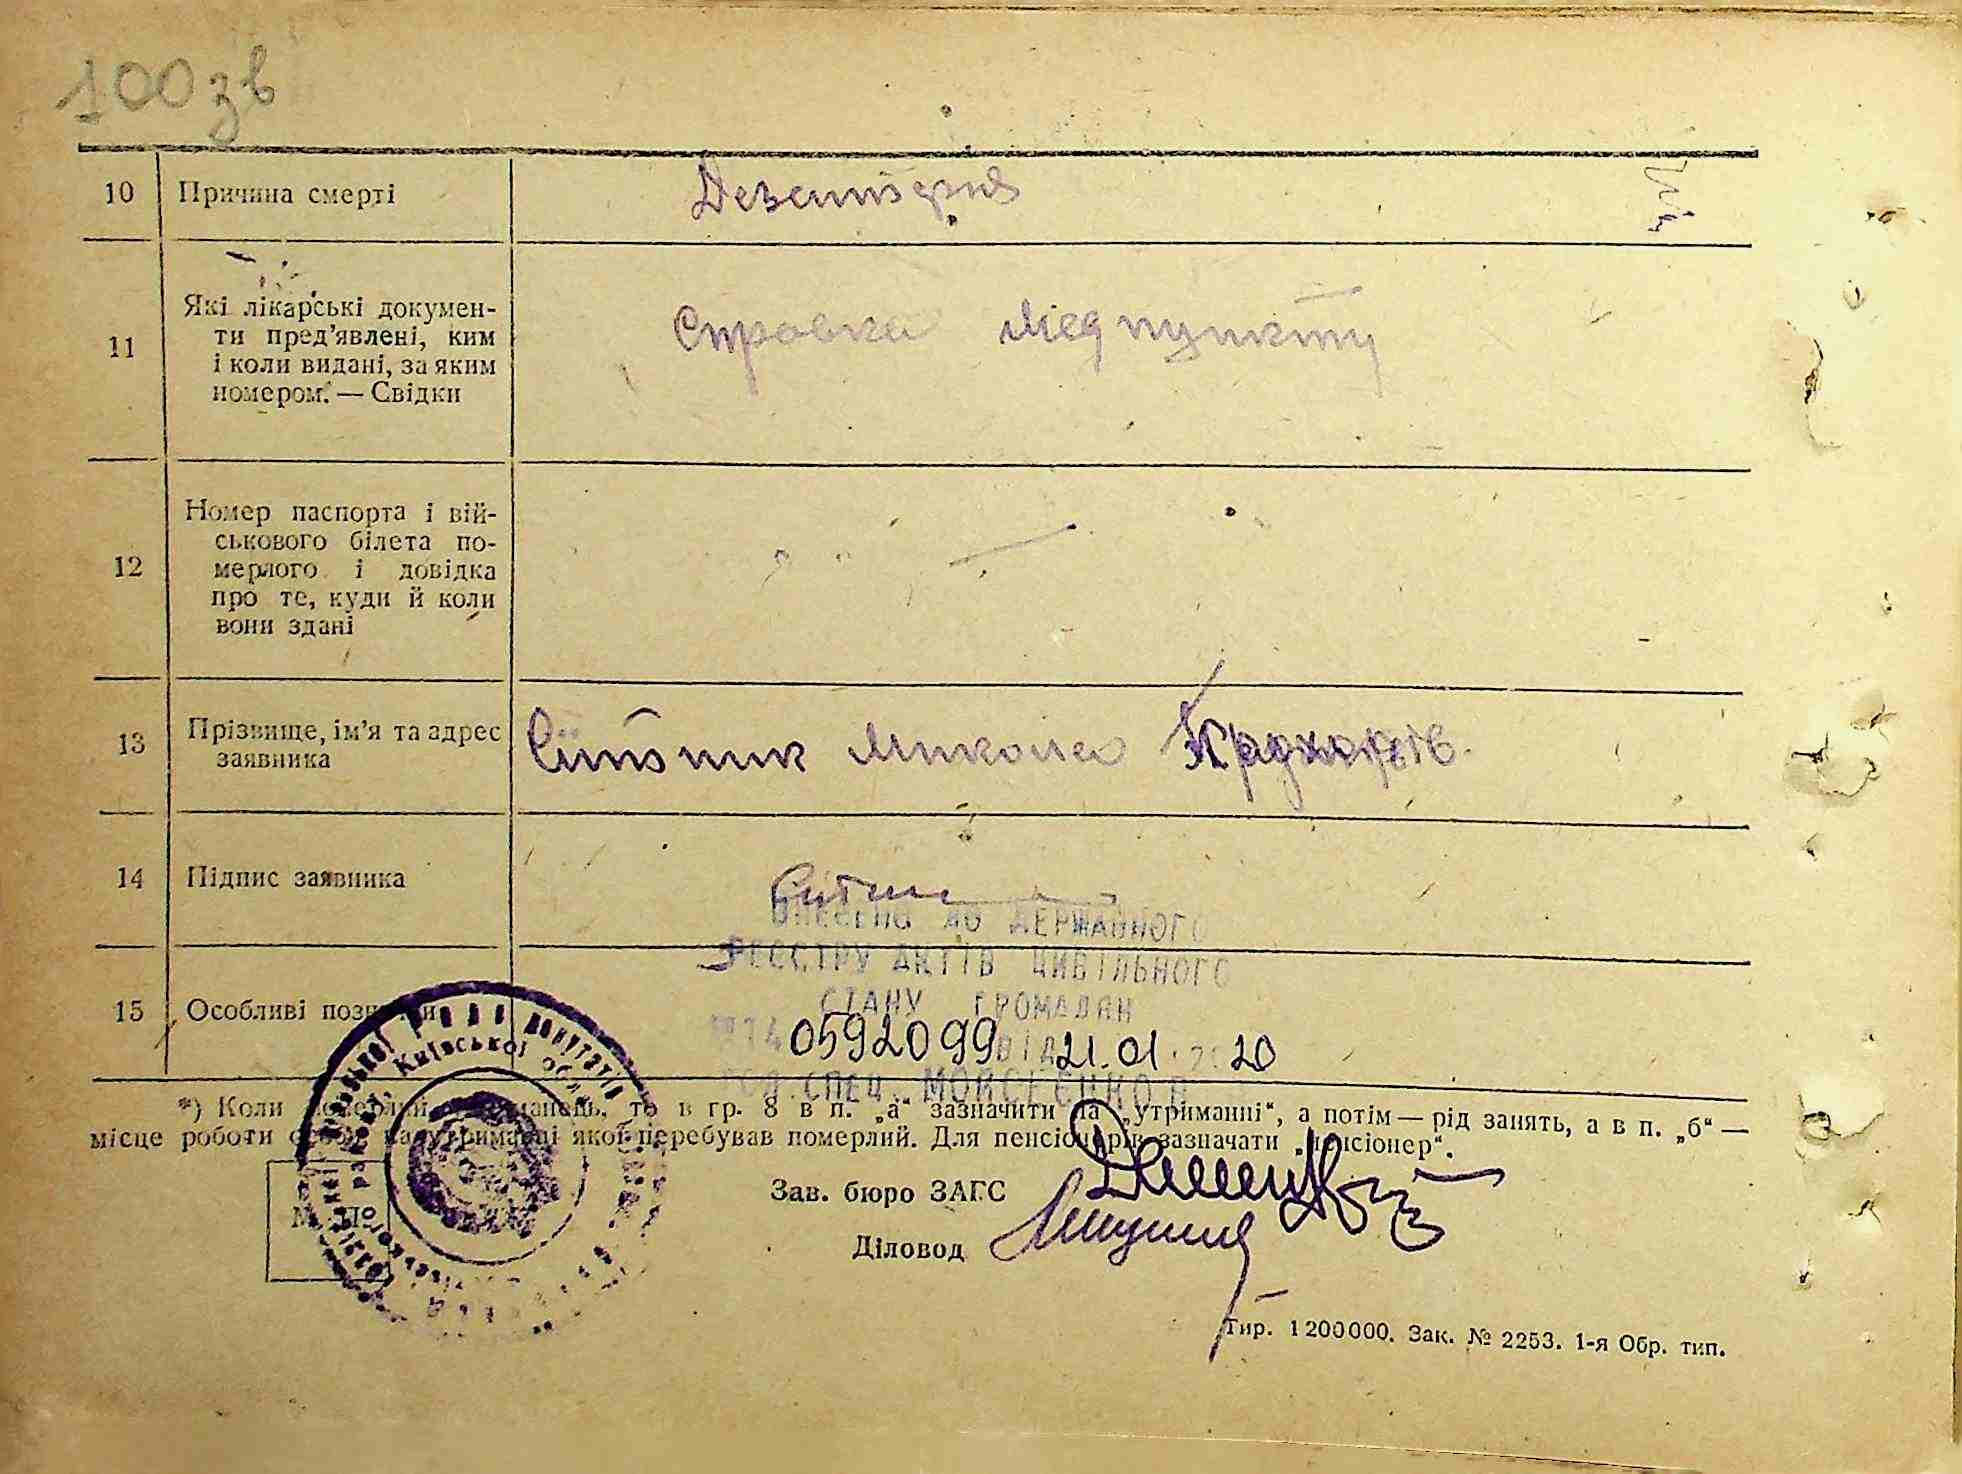 100зв
10 Причина смерті Дезентерия
11 Які лікарські докумен-
ти пред’явлені, ким
і коли видані, за яким
номером. — Свідки
Справка Медпункту
12 Номер паспорта і вій-
ськового білета по-
мерлого і довідка
про те, куди й коли
вони здані
—
13 Прізвище, ім’я та адрес
заявника
Сітник Микола
14 Підпис заявника
ВНЕСЕНО ДО ДЕРЖАВНОГО
РЕЄСТРУ АКТІВ ЦИВІЛЬНОГО
15 Особливі позначки
СТАНУ ГРОМАДЯН
0592099 ВІД 21.01.2020
СПЕЦ. МОИСЕЕНКО
*) Коли померлий утриманець, то в гр. 8 в п. „а“ зазначити на „утриманні“, а потім — рід занять, а в п. „б“ —
місце роботи особи, на утриманні якої перебував померлий. Для пенсіонерів зазначати „пенсіонер“.
М. П.
Київської обл.
депутатів
Зав. бюро ЗАГС
Діловод
Тир. 1200000. Зак. № 2253. 1-я Обр. тип.